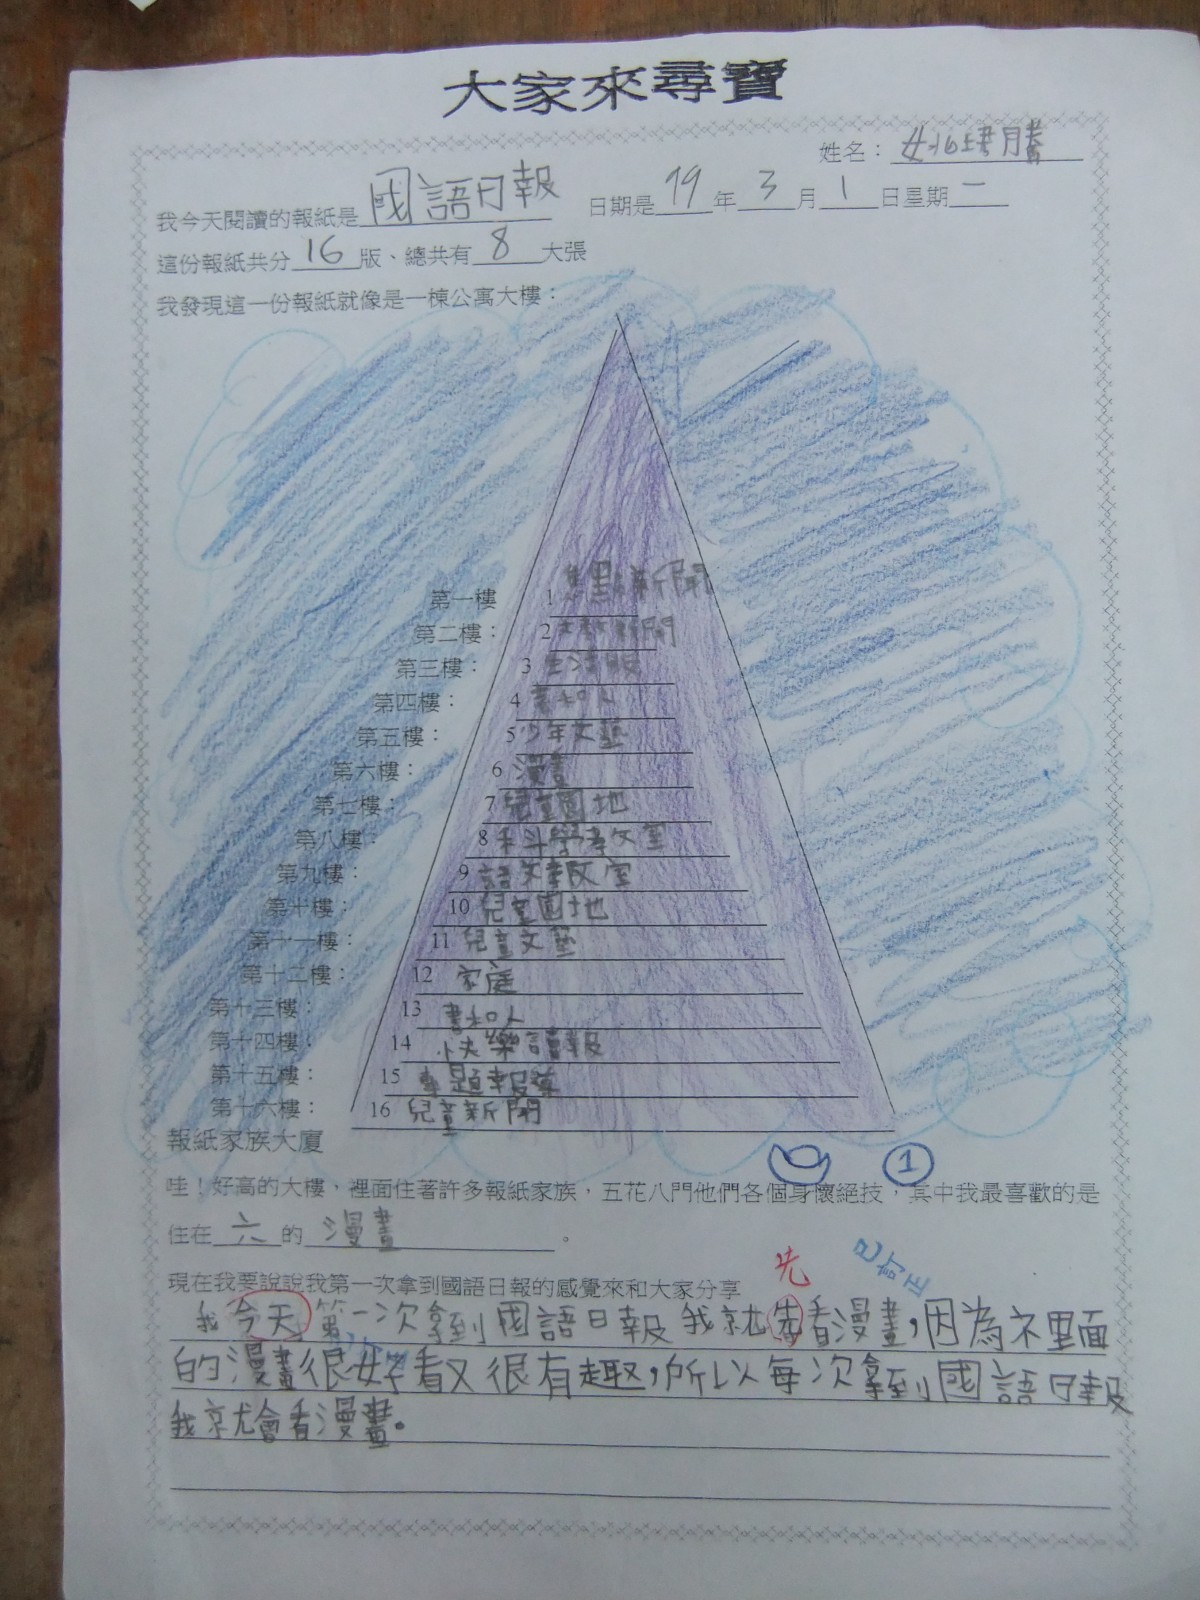 大家來尋寶
姓名：
我今天閱讀的報紙是國語日報 日期是99年3月1日星期一
這份報紙共分16版、總共有8大張
我發現這一份報紙就像是一棟公寓大樓：
第一樓 1 焦點新聞
第二樓： 2 新聞
第三樓： 3 生活版
第四樓： 4 書和人
第五樓： 5 少年文藝
第六樓： 6 漫畫
第七樓： 7 兒童園地
第八樓： 8 科斗學考教室
第九樓： 9 語文教室
第十樓： 10 兒童園地
第十一樓： 11 兒童文藝
第十二樓： 12 家庭
第十三樓： 13 書和人
第十四樓： 14 快樂讀報
第十五樓： 15 專題報導
第十六樓： 16 兒童新聞
報紙家族大廈
①
哇！好高的大樓，裡面住著許多報紙家族，五花八門他們各個身懷絕技，其中我最喜歡的是
住在六的漫畫。
現在我要說說我第一次拿到國語日報的感覺來和大家分享
先 已訂正
我今天第一次拿到國語日報我就先看漫畫，因為裡面
的漫畫很好看又很有趣，所以每次拿到國語日報
我就會看漫畫。